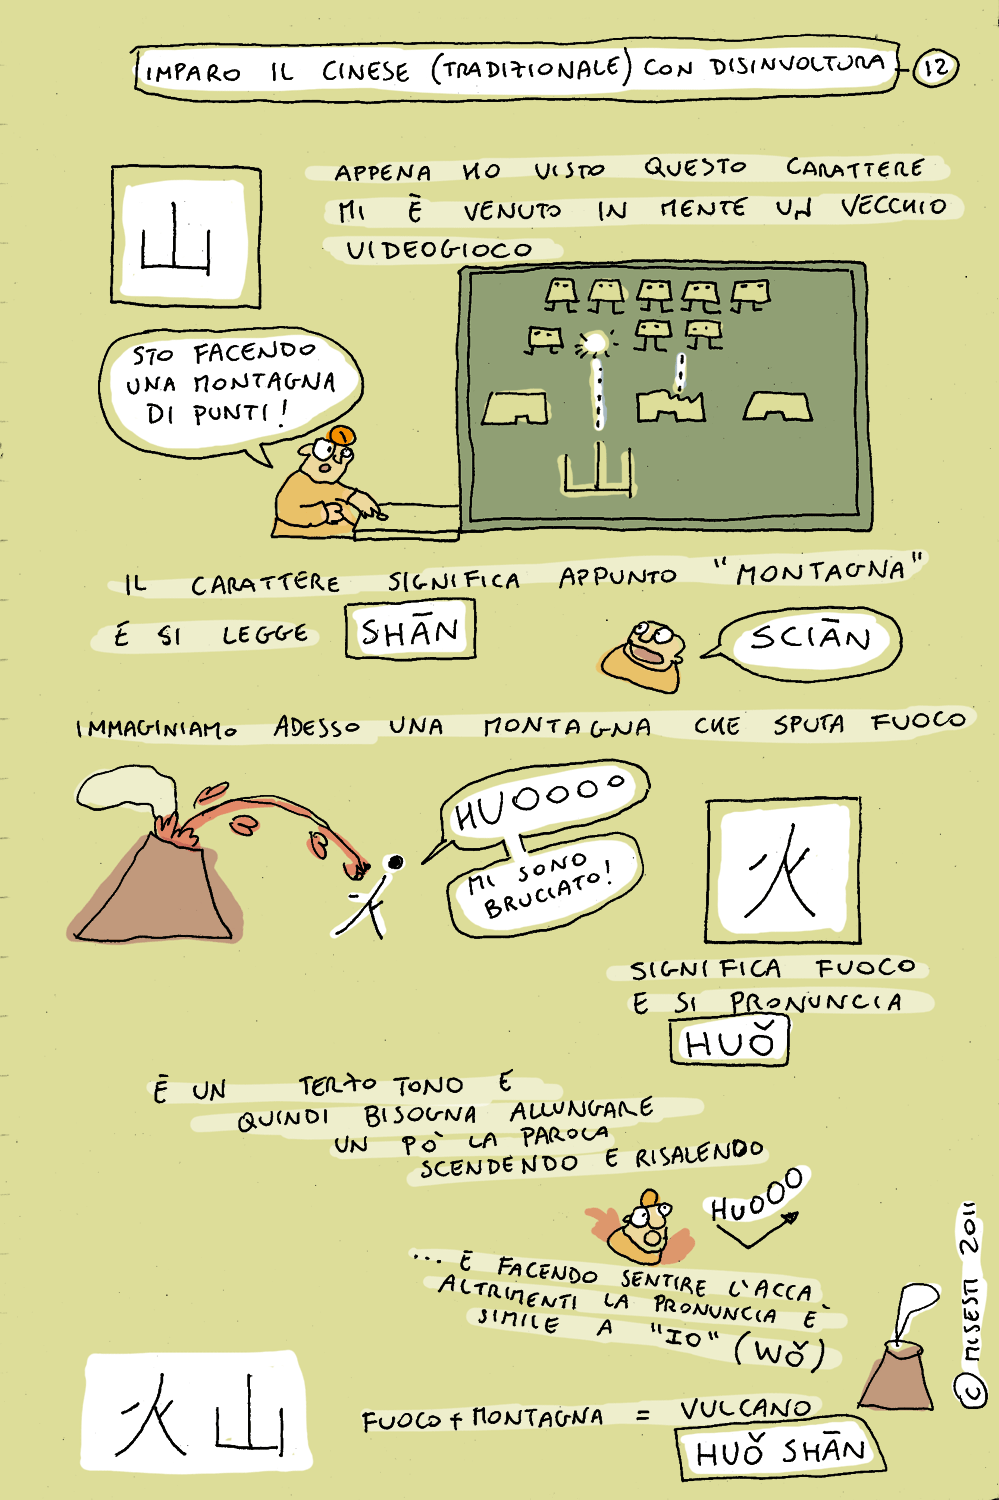 IMPARO IL CINESE (TRADIZIONALE) CON DISINVOLTURA
12
山
APPENA HO VISTO QUESTO CARATTERE
MI È VENUTO IN MENTE UN VECCHIO
VIDEOGIOCO
STO FACENDO
UNA MONTAGNA
DI PUNTI!
山
IL CARATTERE SIGNIFICA APPUNTO "MONTAGNA"
E SI LEGGE SHĀN
SCIĀN
IMMAGINIAMO ADESSO UNA MONTAGNA CHE SPUTA FUOCO
HUOOOO
MI SONO
BRUCIATO!
火
SIGNIFICA FUOCO
E SI PRONUNCIA
HUǑ
È UN TERZO TONO E
QUINDI BISOGNA ALLUNGARE
UN PÒ LA PAROLA
SCENDENDO E RISALENDO
HUOOO
... E FACENDO SENTIRE L'ACCA
ALTRIMENTI LA PRONUNCIA È
SIMILE A "IO" (WǑ)
© MISESTI 2011
火山
FUOCO + MONTAGNA = VULCANO
HUǑ SHĀN